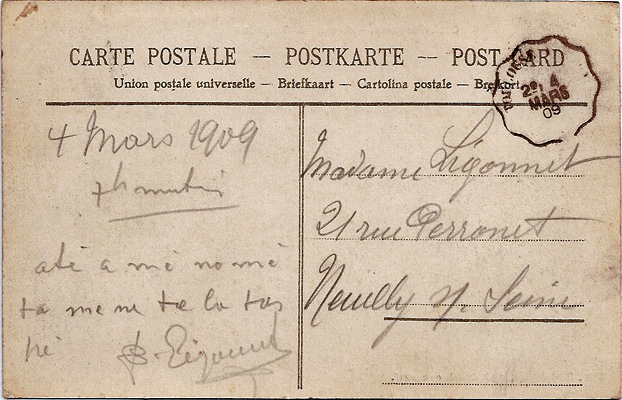 CARTE POSTALE — POSTKARTE — POST-CARD
Union postale universelle — Briefkaart — Cartolina postale —
2E 4
MARS
09
4 Mars 1909
7h matin
até a mé no mé
ta me ne ta la tas
pé
B. Ligonnet
Madame Ligonnet
21 rue Perronet
Neuilly s/ Seine